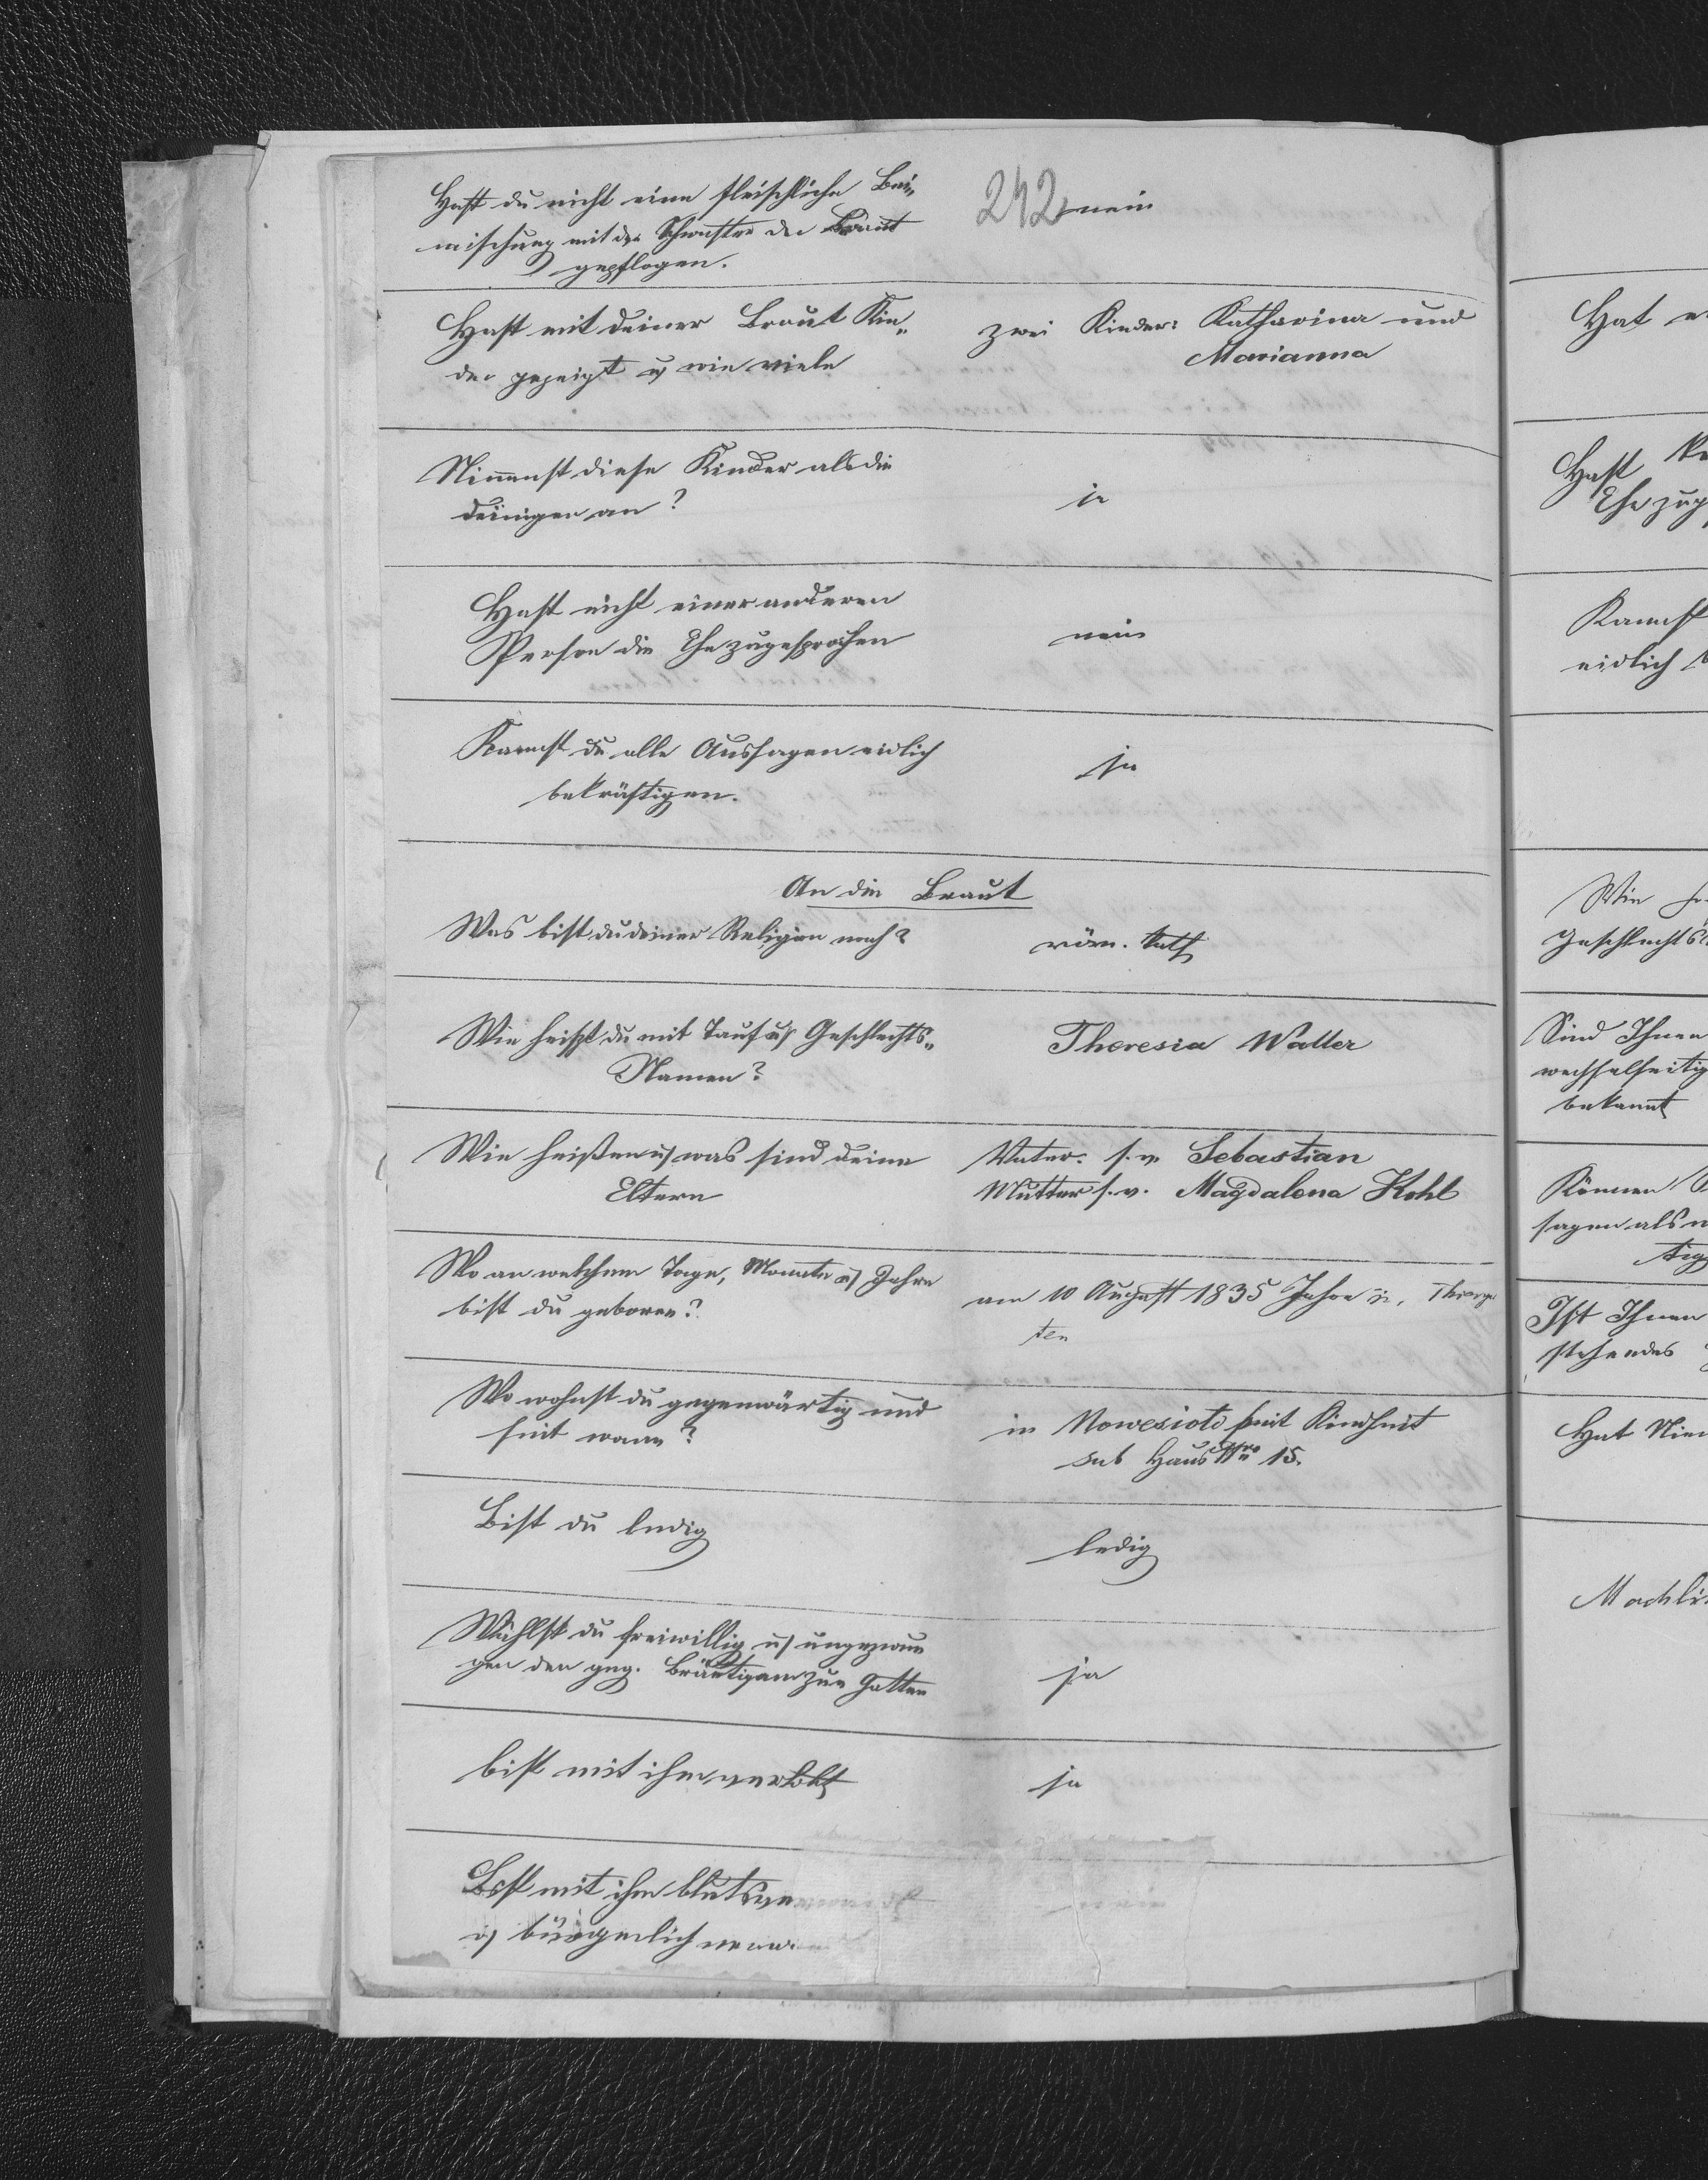 242
Hast du nicht eine fleischliche Bei„ nein
mischung mit der Schwester der Braut
gepflogen.
Hast mit deiner Braut Kin„ zwei Kinder: Katharina und
der gezeigt u. wie viele Marianna
Nimmst diese Kinder als die
deinigen an? ja
Hast nicht einer anderen
Person die Ehe zugesprochen nein
Kannst du alle Aussagen eidlich
bekräftigen. ja
An die Braut
Was bist du deiner Religion nach? röm. kath
Wie heißt du mit Tauf u. Geschlechts„
Namen? Theresia Walter
Wie heißen u. was sind deine Vater: s. v. Sebastian
Eltern Mutter s. v. Magdalena Kohl
Wo an welchem Tage, Monate u. Jahre
bist du geboren? am 10 August 1835 Jahre
Wo wohnst du gegenwärtig und
seit wann? in Nowesioło seit Kindheit
sub Haus Nro 15.
Bist du ledig ledig
Wählst du freiwillig u. ungezwun
gen den geg. Bräutigam zum Gatten ja
bist mit ihm verlobt ja
Bist mit ihm
u. bürgerlich
Hat
Hast
Ehe
Kannst
eidlich
Wie
Geschlechts
Sind Ihnen
wechselseitig
bekannt
Können
sagen als
Ist Ihnen
stehendes
Hat